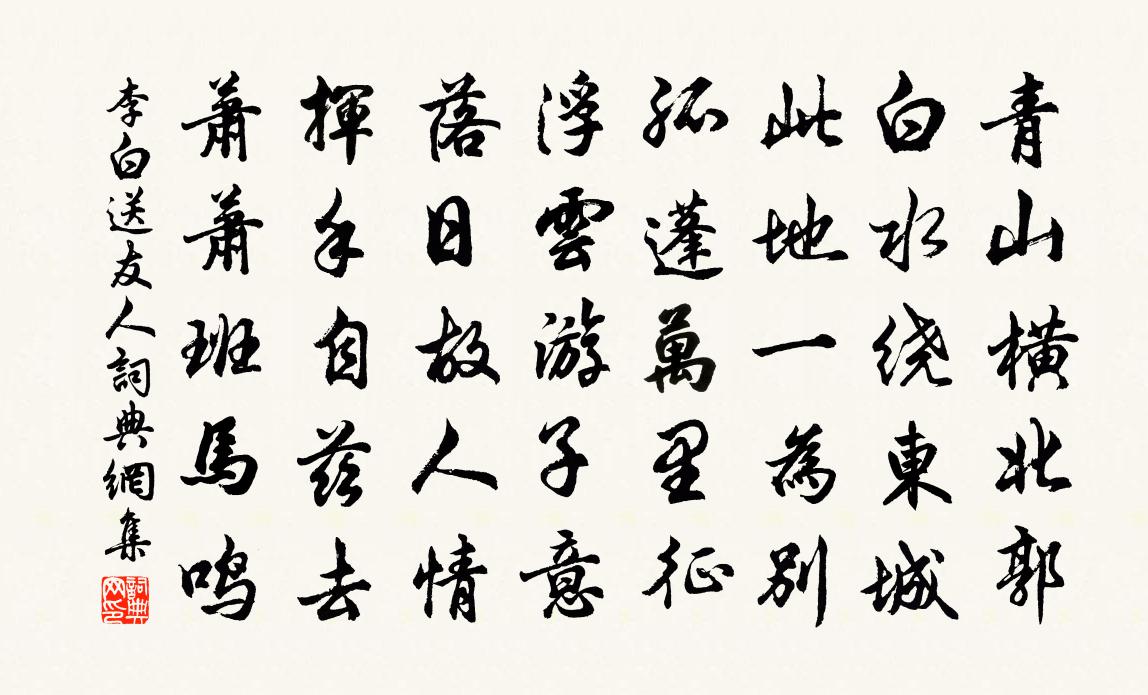 青山橫北郭
白水绕東城
此地一為别
孤蓬萬里征
浮雲游子意
落日故人情
揮手自茲去
蕭蕭班馬鸣
李白送友人詞典網集
詞典网印